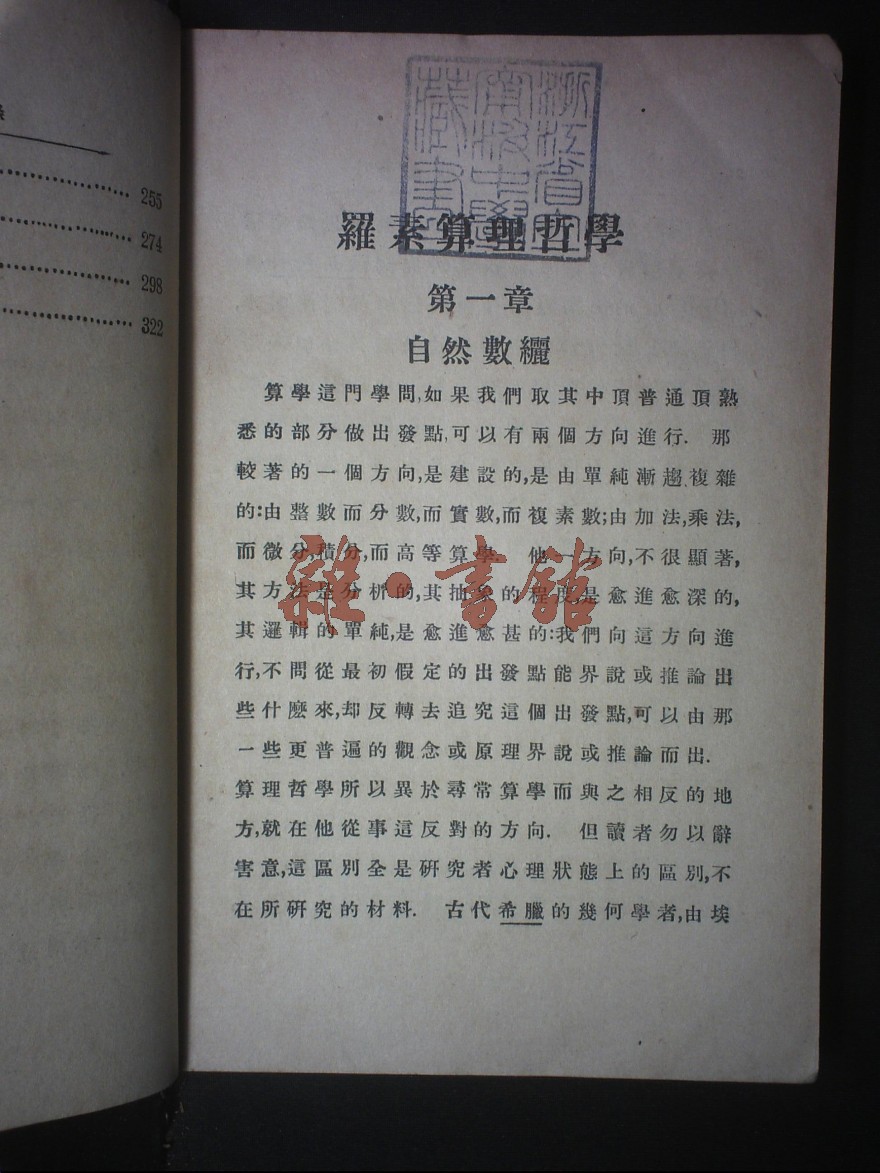 255
274
298
322
羅素算理哲學
第一章
自然數纚
算學這門學問,如果我們取其中頂普通頂熟
悉的部分做出發點,可以有兩個方向進行. 那
較著的一個方向,是建設的,是由單純漸趨複雜
的:由整數而分數,而實數,而複素數;由加法,乘法,
而微分,積分,而高等算學. 他一方向,不很顯著,
其方法是分析的,其抽象的程度,是愈進愈深的,
其邏輯的單純,是愈進愈甚的:我們向這方向進
行,不問從最初假定的出發點能界說或推論出
些什麽來,却反轉去追究這個出發點,可以由那
一些更普遍的觀念或原理界說或推論而出.
算理哲學所以異於尋常算學而與之相反的地
方,就在他從事這反對的方向. 但讀者勿以辭
害意,這區別全是硏究者心理狀態上的區別,不
在所硏究的材料. 古代希臘的幾何學者,由埃
雜·書館